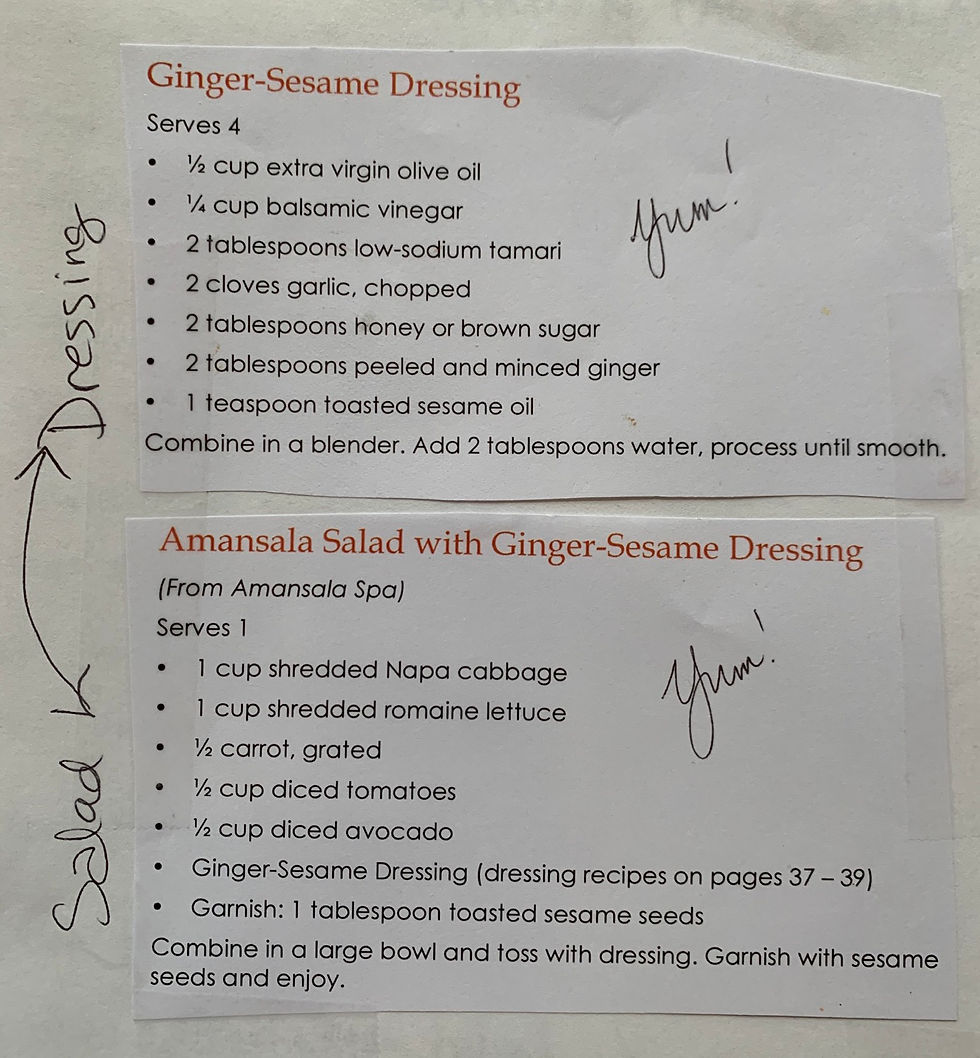 Ginger-Sesame Dressing
Serves 4
• ½ cup extra virgin olive oil
• ¼ cup balsamic vinegar
• 2 tablespoons low-sodium tamari
• 2 cloves garlic, chopped
• 2 tablespoons honey or brown sugar
• 2 tablespoons peeled and minced ginger
• 1 teaspoon toasted sesame oil
Combine in a blender. Add 2 tablespoons water, process until smooth.
Yum!
Dressing
Amansala Salad with Ginger-Sesame Dressing
(From Amansala Spa)
Serves 1
• 1 cup shredded Napa cabbage
• 1 cup shredded romaine lettuce
• ½ carrot, grated
• ½ cup diced tomatoes
• ½ cup diced avocado
• Ginger-Sesame Dressing (dressing recipes on pages 37 – 39)
• Garnish: 1 tablespoon toasted sesame seeds
Combine in a large bowl and toss with dressing. Garnish with sesame
seeds and enjoy.
Yum!
Salad